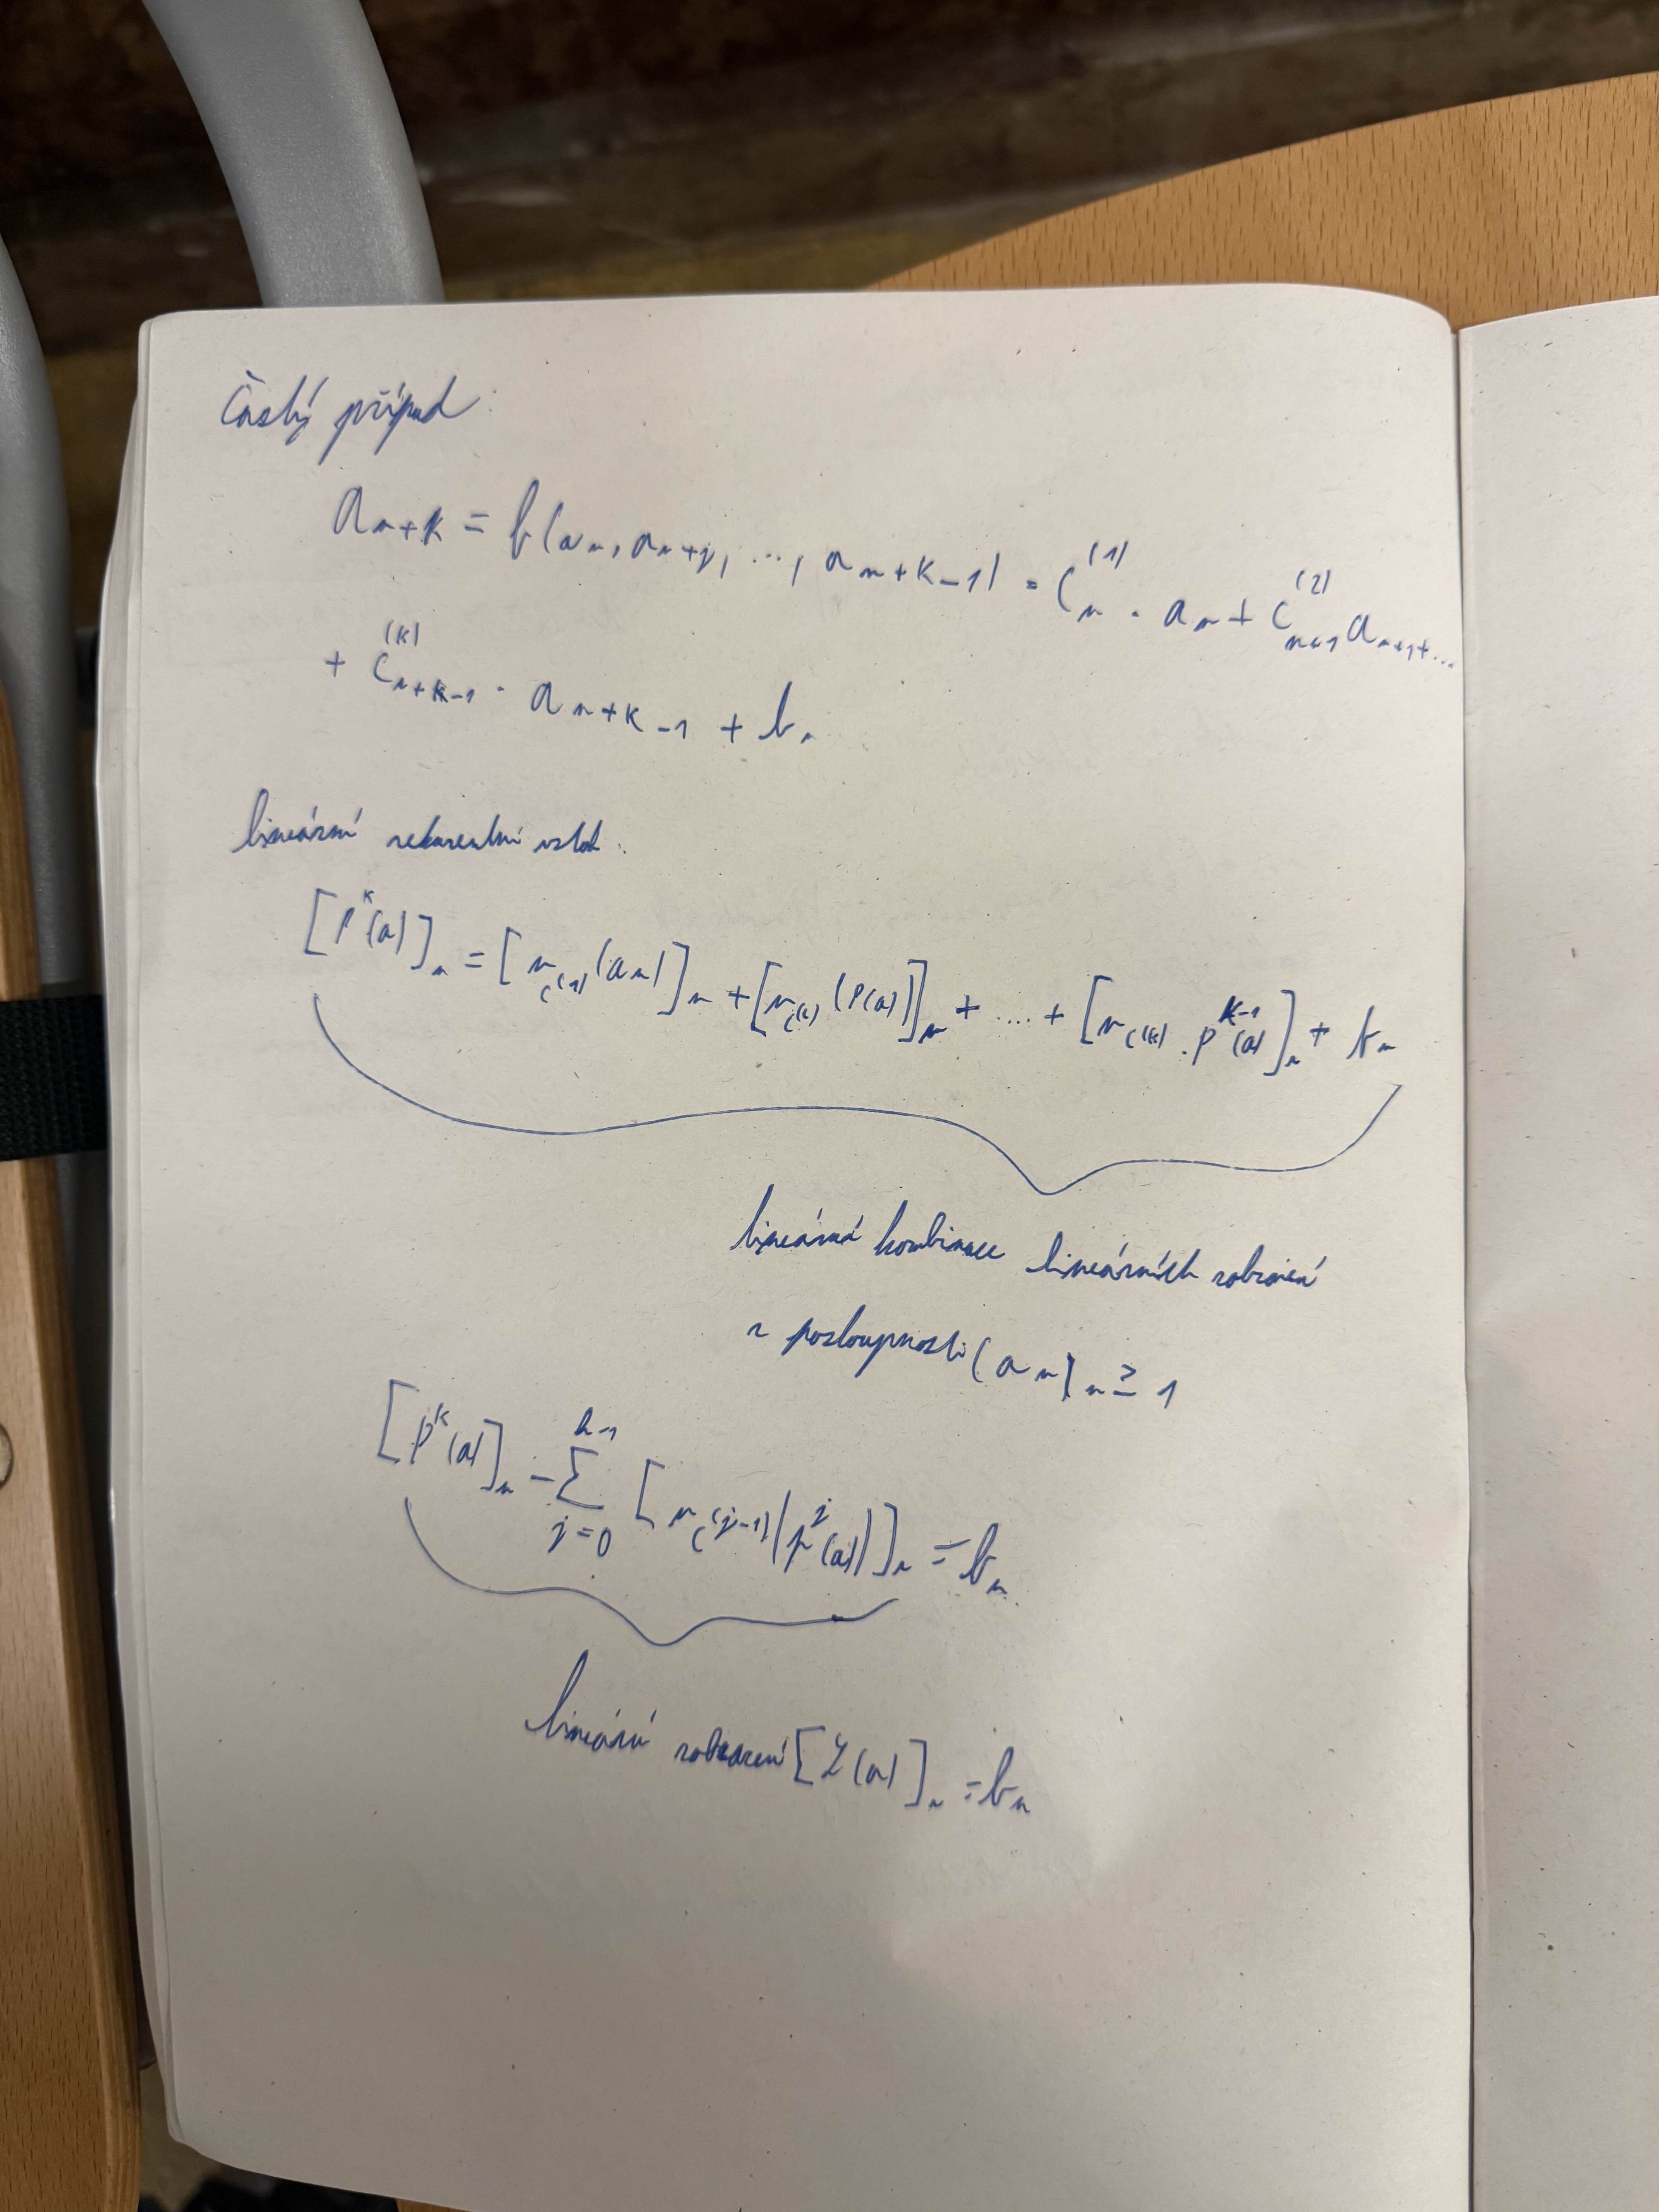 Častý případ
a_{n+k} = f(a_n, a_{n+1}, ..., a_{n+k-1}) = c_n^{(1)} · a_n + c_{n+1}^{(2)} a_{n+1} + ...
+ c_{n+k-1}^{(k)} · a_{n+k-1} + b_n
lineární rekurentní vztah
[P^k(a)]_n = [r_{c^{(1)}}(a_n)]_n + [r_{c^{(k)}}(P(a))]_n + .... + [r_{c^{(k)}} · P^{k-1}(a)]_n + b_n
lineární kombinace lineárních zobrazení
z posloupnosti (a_n)_{n≥1}
[P^k(a)]_n - Σ_{j=0}^{k-1} [r_{c^{(j-1)}}(P^j(a))]_n = b_n
lineární zobrazení [L(a)]_n = b_n